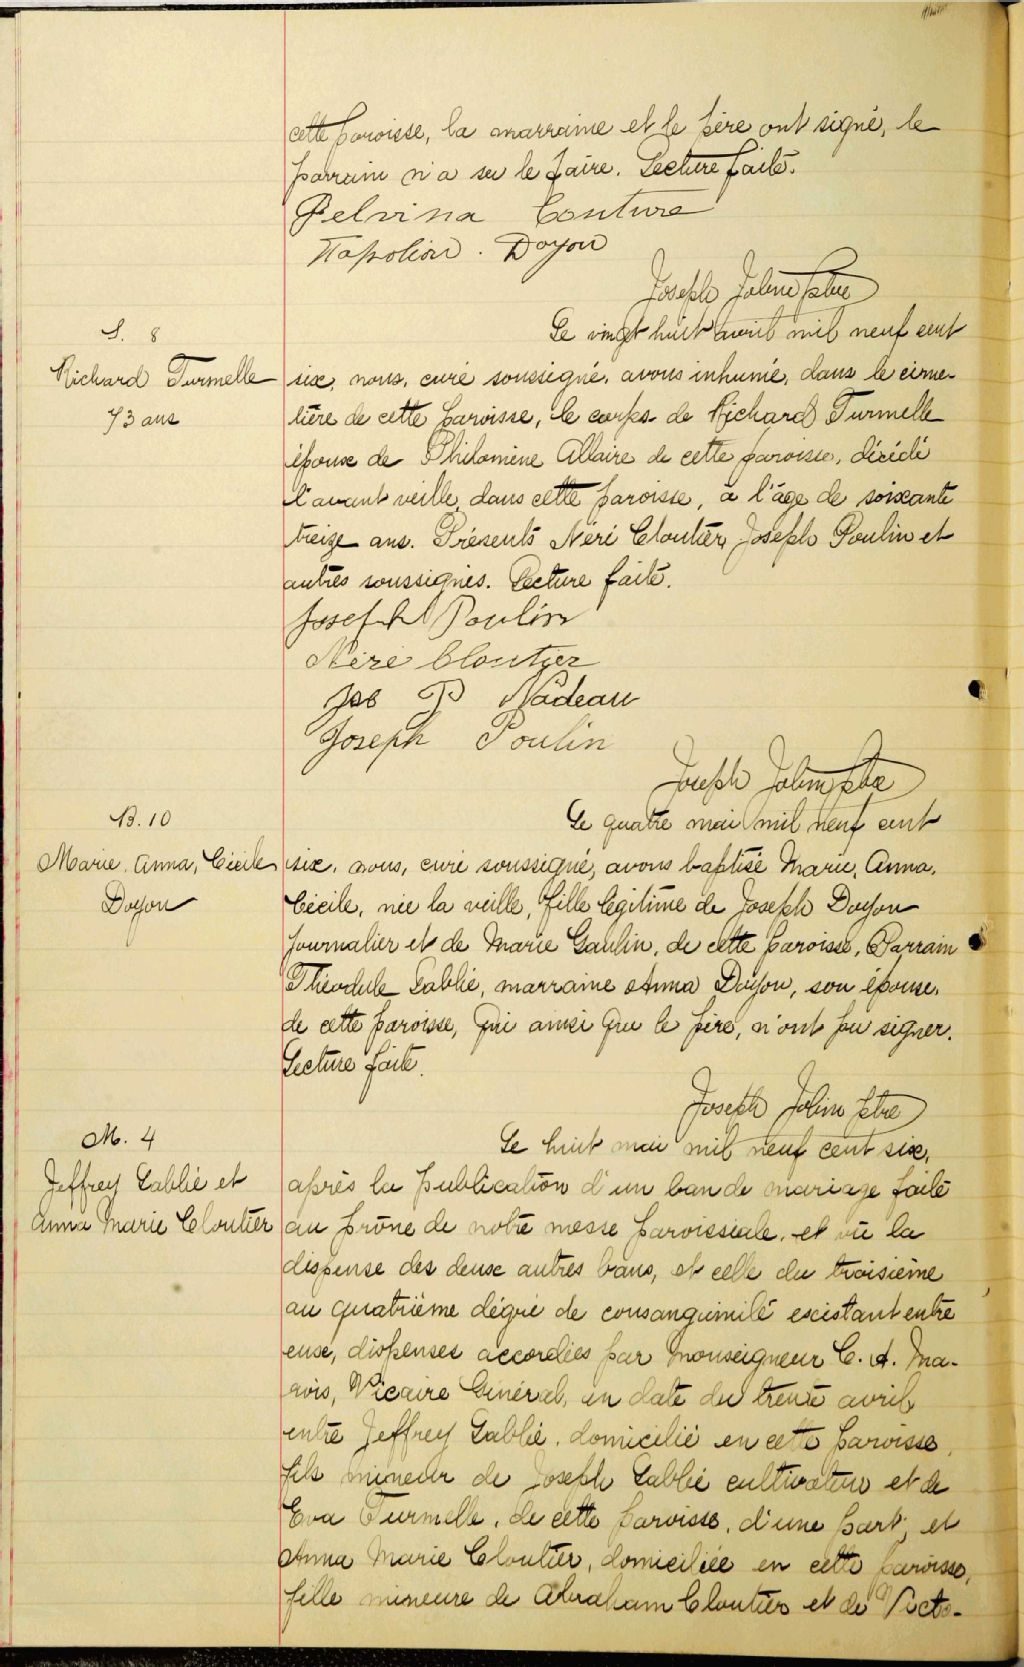 cette paroisse, la marraine et le père ont signé, le
parrain n'a su le faire. Lecture faite.
Pelvina Couture
Napoléon. Doyon
Joseph Jolin ptre
S. 8
Richard Turmelle
73 ans
Le vingt huit avril mil neuf cent
six, nous, curé soussigné, avons inhumé, dans le cime-
tière de cette paroisse, le corps de Richard Turmelle
époux de Philomène Allaire de cette paroisse, décédé
l'avant veille, dans cette paroisse, à l'âge de soixante
treize ans. Présents Néré Cloutier, Joseph Poulin et
autres soussignés. Lecture faite.
Joseph Poulin
Néré Cloutier
Jos P Nadeau
Joseph Poulin
Joseph Jolin ptre
B. 10
Marie, Anna, Cécile
Doyon
Le quatre mai mil neuf cent
six, nous, curé soussigné, avons baptisé Marie, Anna,
Cécile, née la veille, fille légitime de Joseph Doyon
journalier et de Marie Gaulin, de cette paroisse, Parrain
Théodule Labbé, marraine Anna Doyon, son épouse,
de cette paroisse, qui ainsi que le père, n'ont pu signer.
Lecture faite.
Joseph Jolin ptre
M. 4
Jeffrey Labbé et
Anna Marie Cloutier
Le huit mai mil neuf cent six,
après la publication d'un ban de mariage faite
au prône de notre messe paroissiale, et vu la
dispense des deux autres bans, et celle du troisième
au quatrième dégré de consanguinité existant entre
eux, dispenses accordées par Monseigneur C. A. Ma-
rois, Vicaire Général, en date du trente avril,
entre Jeffrey Labbé, domicilié en cette paroisse,
fils mineur de Joseph Labbé cultivateur et de
Eva Turmelle, de cette paroisse, d'une part, et
Anna Marie Cloutier, domiciliée en cette paroisse,
fille mineure de Abraham Cloutier et de Victo-